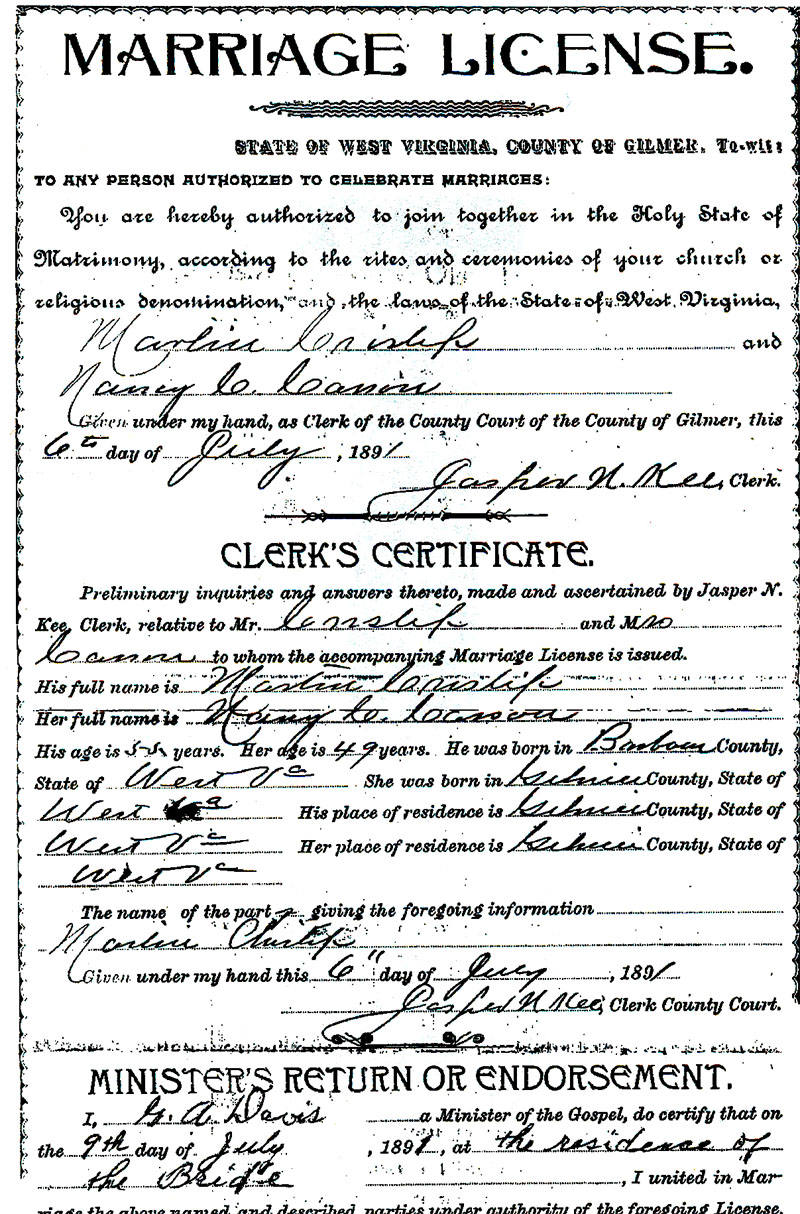 MARRIAGE LICENSE.
STATE OF WEST VIRGINIA, COUNTY OF GILMER, To-wit:
TO ANY PERSON AUTHORIZED TO CELEBRATE MARRIAGES:
You are hereby authorized to join together in the Holy State of
Matrimony, according to the rites and ceremonies of your church or
religious denomination, and the laws of the State of West Virginia,
Martin Crislip and
Nancy C. Canon
Given under my hand, as Clerk of the County Court of the County of Gilmer, this
6th day of July, 1891
Jasper N. Kee, Clerk.
CLERK'S CERTIFICATE.
Preliminary inquiries and answers thereto, made and ascertained by Jasper N.
Kee, Clerk, relative to Mr. Crislip and Mrs
Canon to whom the accompanying Marriage License is issued.
His full name is Martin Crislip
Her full name is Nancy C. Canon
His age is 55 years. Her age is 49 years. He was born in Barbour County,
State of West Va She was born in Gilmer County, State of
West Va His place of residence is Gilmer County, State of
West Va Her place of residence is Gilmer County, State of
West Va
The name of the party giving the foregoing information
Martin Chrislip
Given under my hand this 6" day of July, 1891
Jasper N Kee, Clerk County Court.
MINISTER'S RETURN OR ENDORSEMENT.
I, G. A. Davis a Minister of the Gospel, do certify that on
the 9th day of July, 1891, at the residence of
the Bride, I united in Mar-
riage the above named and described parties under authority of the foregoing License.